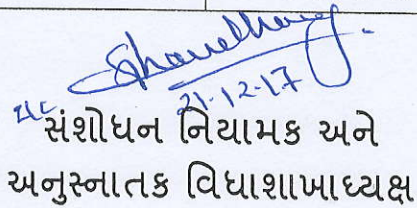 21-12-17
સંશોધન નિયામક અને
અનુસ્નાતક વિદ્યાશાખાધ્યક્ષ